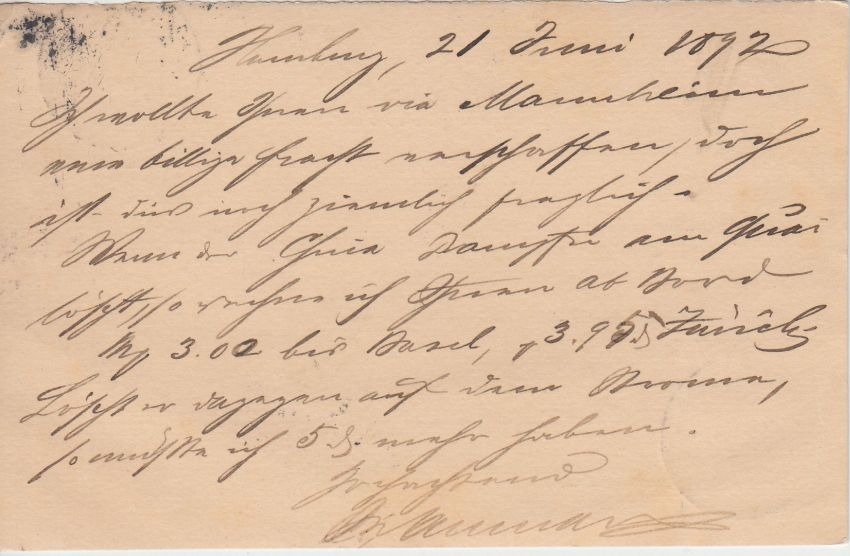 Hamburg, 21 Juni 1892
Ich wollte Ihnen via Mannheim
eine billige Fracht verschaffen, doch
ist dies noch ziemlich fraglich.
Wenn der China Dampfer am Quai
löscht, so rechne ich Ihnen ab Bord
M 3.02 bis Basel, 3.95 Zürich,
Löscht er dagegen auf dem Strome,
so müßte ich 5 d mehr haben.
Hochachtend